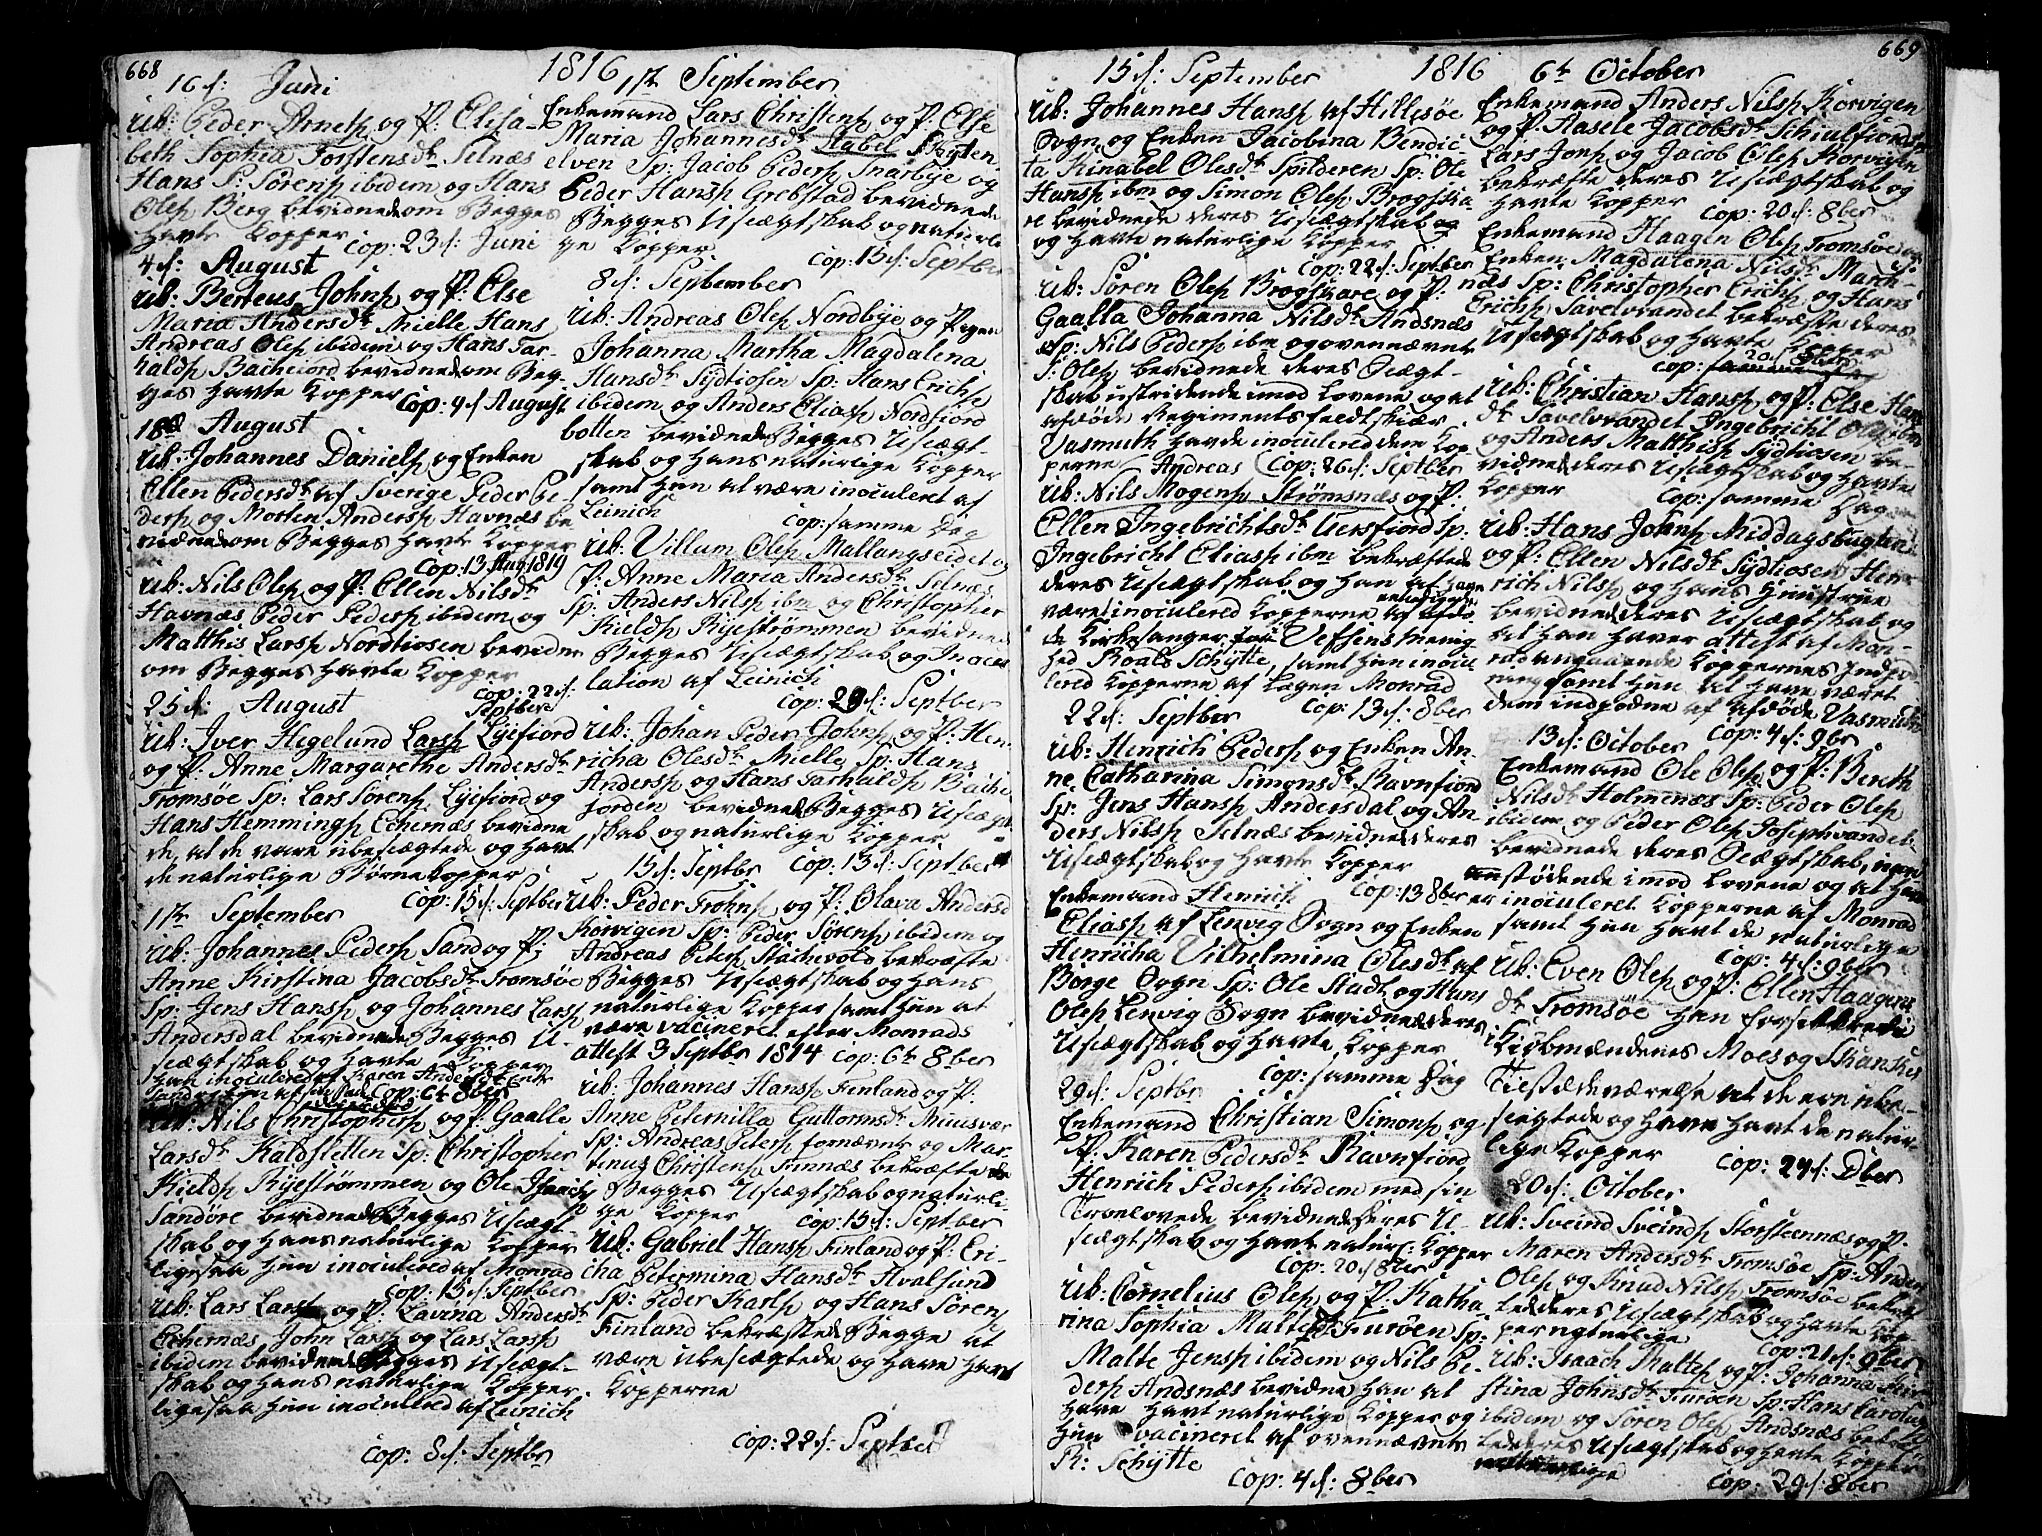 668
1816
16d: Juni
Uk: Peder Arnesp og P: Elisa-
beth Sophia Torstensdr Selnæs
Hans P: Sørensp ibidem og Hans
Olsp Berg bevidnede om Begges
havte Kopper
Cop: 23d: Juni
4d: August
Uk: Berteus Johnsp og P: Else
Maria Andersdr Mielle Hans
Andreas Olsp ibidem og Hans Tar-
haldsp Bachefiord bevidnede om Beg-
ges havte Kopper Cop: 4d August
18d August
Uk: Johannes Danielsp og Enken
Ellen Pedersdr af Sverige Peder Pe-
dersp og Morten Andersp Havnæs be
vidnede om Begges havte Kopper
Cop: 13 Aug: 1819
Uk: Nils Olsp og P: Ellen Nilsdr
Havnæs Peder Pedersp ibidem og
Matthis Larsp Nordtiosen bevidne
om Begges havte Kopper
Cop: 22d:
Septber
25d: August
Uk: Iver Hegelund Larsp Lyefiord
og P: Anne Margarethe Andersdr
Tromsøe Sp: Lars Sørensp Lyefiord og
Hans Hemmingsp Echernæs bevidne
de, at de vare ubesvægtede og havt
de naturlige Børnekopper
Cop: 15d: Septber
1ste September
Uk: Johannes Pedersp Sand og P:
Anne Kirstina Jacobsdr Tromsøe
Sp: Jens Hansp og Johannes Larsp
Andersdal bevidnede Begges U-
sægtskab og havte Kopper
Cop: 6te 8ber
Uk: Nils Christophersp og P: Gaalle
Larsdr Kaldsletten Sp: Christopher
Kieldsp Ryestrømmen og Ole
Sandøre bevidnede Begges Usægt
skab og hans naturlige Kopper
ligesaa hun inoculered af Monrad
Cop: 15d: Septber
Uk: Lars Larsp og P: Lavina Andersdr
Echernæs, John Larsp og Lars Larsp
ibidem bevidnede Begges Usægt-
skab og hans naturlige Kopper.
ligesaa hun inoculered af Leinich
Cop: 8d: Septbr
1ste September
Enkemand Lars Christensp og P: Else
Maria Johannesdr Stabel Skogten-
elven Sp: Jacob Pedersp Snarbye og
Peder Hansp Grebstad bevidnede
Begges Usægtskab og naturli
ge Kopper
Cop: 15d: Septber
8d: September
Uk: Andreas Olsp Nordbye og Pigen
Johanna Martha Magdalena
Hansdr Sydtiosen Sp: Hans Erichsp
ibidem og Anders Eliasp Nordfiord
botten bevidnede Begges Usægt-
skab og hans naturlige Kopper
samt hun at være inoculeret af
Leinich
Cop: samme Dag
Uk: Villum Olsp Mallangseidet og
P: Anne Maria Andersdr Selnæs
Sp: Anders Nilsp ibm og Christopher
Kieldsp Ryestrømmen bevidnede
Begges Usægtskab og Inocu
lation af Leinich
Cop: 29d: Septber
Uk: Johan Peder Johnsp og P: Hen-
richa Olesdr Mielle, Sp: Hans
Andersp og Hans Tarhaldsp Bache
fiorden bevidnede Begges Usægt-
skab og naturlige Kopper
Cop: 13d: Septber
15d: Septbr
Uk: Peder Trohnsp og P: Olava Andersd
Korvigen Sp: Peder Sørensp ibidem og
Andreas Petersp Stachevold bekræfte
Begges Usægtskab og hans
naturlige Kopper samt hun at
være vacineret efter Monrads
attest 3 Septbr 1814 Cop: 6te 8ber
Uk: Johannes Hansp Finland og P:
Anne Peternilla Guttormsdr Muusvær
Sp: Andreas Petersp fornævnte og Mar-
tinus Christensp Finnæs bekræftede
Begges Usægtskab og naturli-
ge Kopper Cop: 15d: Septber
Uk: Gabriel Hansp Finland og P: Eri-
cha Petermina Hansdr Hvalsund
Sp: Peder Karlsp og Hans Sørensp
Finland bekræftede Begge at
være ubesægtede og have havt
Kopperne
Cop: 22d: Septber
669
1816
15d: September
Uk: Johannes Hansp af Hillesøe
Sogn og Enken Jacobina Bendic
ta Kinabel Olesdr Spilderen Sp: Ole
Hansp ibm og Simon Olsp Brogskia
re bevidnede deres Usægtskab og
og havte naturlige Kopper
Cop: 22d: Septber
Uk: Søren Olsp Brogskare og P:
Gaalla Johanna Nilsdr Andsnæs
Sp: Nils Pedersp ibm og ovennævnte
S: Olsp bevidnede deres Sægt-
skab ustridende imod Lovene og at
afdøde Regimentsfeldtskiær
Vasmuth havde inoculered dem Kop
perne Andreas Cop: 26d: Septber
Uk: Nils Mogensp Strømsnæs og P:
Ellen Ingebrichtsdr Uersfiord Sp:
Ingebricht Eliasp ibm bekræftede
deres Usægtskab og han af have
være inoculered Kopperne af
de Kirkesanger Vefsens Menig
hed Roals Schytte, samt hun inocu
lered Kopperne af Lægen Monrad
22d: Septber Cop: 13d: 8ber
Uk: Henrich Pedersp og Enken An-
ne Catharina Simonsdr Ravnfiord
Sp: Jens Hansp Andersdal og An
ders Nilsp Selnæs bevidnede deres
Usægtskab og havte Kopper
Cop: 13 8ber
Enkemand Henrich
Eliasp af Lenvig Sogn og Enken
Henricha Vilhelmina Olesdr af
Borge Sogn Sp: Ole Stadt og Hans
Olsp Lenvig Sogn bevidnede deres
Usægtskab og havte Kopper
Cop: samme Dag
29d: Septbr
Enkemand Christian Simonsp og
P: Karen Pedersdr Ravnfiord,
Henrich Pedersp ibidem med sin
Troelovede bevidnede deres U-
sægtskab og havte naturl: Kopper
Cop: 20d: 8ber
Uk: Cornelius Olsp og P: Katha
rina Sophia Maltesdr Furøen Sp:
Malte Jensp ibidem og Nils Pe-
dersp Andsnæs bevidne han at
have havt naturlige Kopper og
hun vacineret af ovennævnte
R: Schytte
Cop: 4d: 8ber
6te October
Enkemand Anders Nilsp Korvigen
og P: Aasele Jacobsdr Schiulfiorden
Lars Jonsp og Jacob Olsp Korvigen
bekræfte deres Usægtskab og
havte Kopper Cop: 20d: 8ber
Enkemand Haagen Olsp Tromsøe og
Enken Magdalena Nilsdr March-
næs Sp: Christopher Erichsp og Hans
Erichsp Savelvrandet bekræfte deres
Usægtskab og havte Kopper
Cop: 20d 8ber
Uk: Christian Hansp og P: Else Hans
dr Savelvrandet Ingebricht Olsp
og Anders Matthisp Sydtiosen be-
vidnede deres Usægtskab og havte
Kopper
Cop: samme Dag
Uk: Hans Johnsp Middagsbugten
og P: Ellen Nilsdr Sydtiosen Hen-
rich Nilsp og hans Hunstrue
bevidnede deres Usægtskab og
at han haver attest af Mon-
rad angaaende Koppernes Indpod
ning samt hun at have været
dem indpodne af afdøde Vasmuth
Cop: 4d: 9br
13d: October
Enkemand Ole Olsp og P: Bereth
Nilsdr Holmenæs Sp: Peder Olsp
ibidem og Peder Olsp Josephvandet
bevidnede deres Sægtskab,
anstødende imod Lovene og at han
er inoculeret Kopperne af Monrad
samt hun havt de naturlige
Cop: 4d: 9ber
Uk: Even Olsp og P: Ellen Haagens
dr Tromsøe han forsikkrede i
Kiøbmændenes Moes og Skanches
Tilstædeværelse at de ere ube-
sægtede og have havt de natur-
lige Kopper Cop: 24d: Dber
20d: October
Uk: Sveind Sveindsp Torsteennæs og P:
Maren Andersdr Tromsøe Sp: Anders
Olsp og Knud Nilsp Tromsøe bekræf
tede deres Usægtskab og havte Kop-
per naturlige
Cop: 21d: 9ber
Uk: Isaach Maltesp og P: Johanna
stina Johnsdr Furøen Sp: Hans Larsp
ibidem og Søren Olsp Andsnæs bekræf
tede deres Usægtskab og havte Kopper
Cop: 29d: 8ber